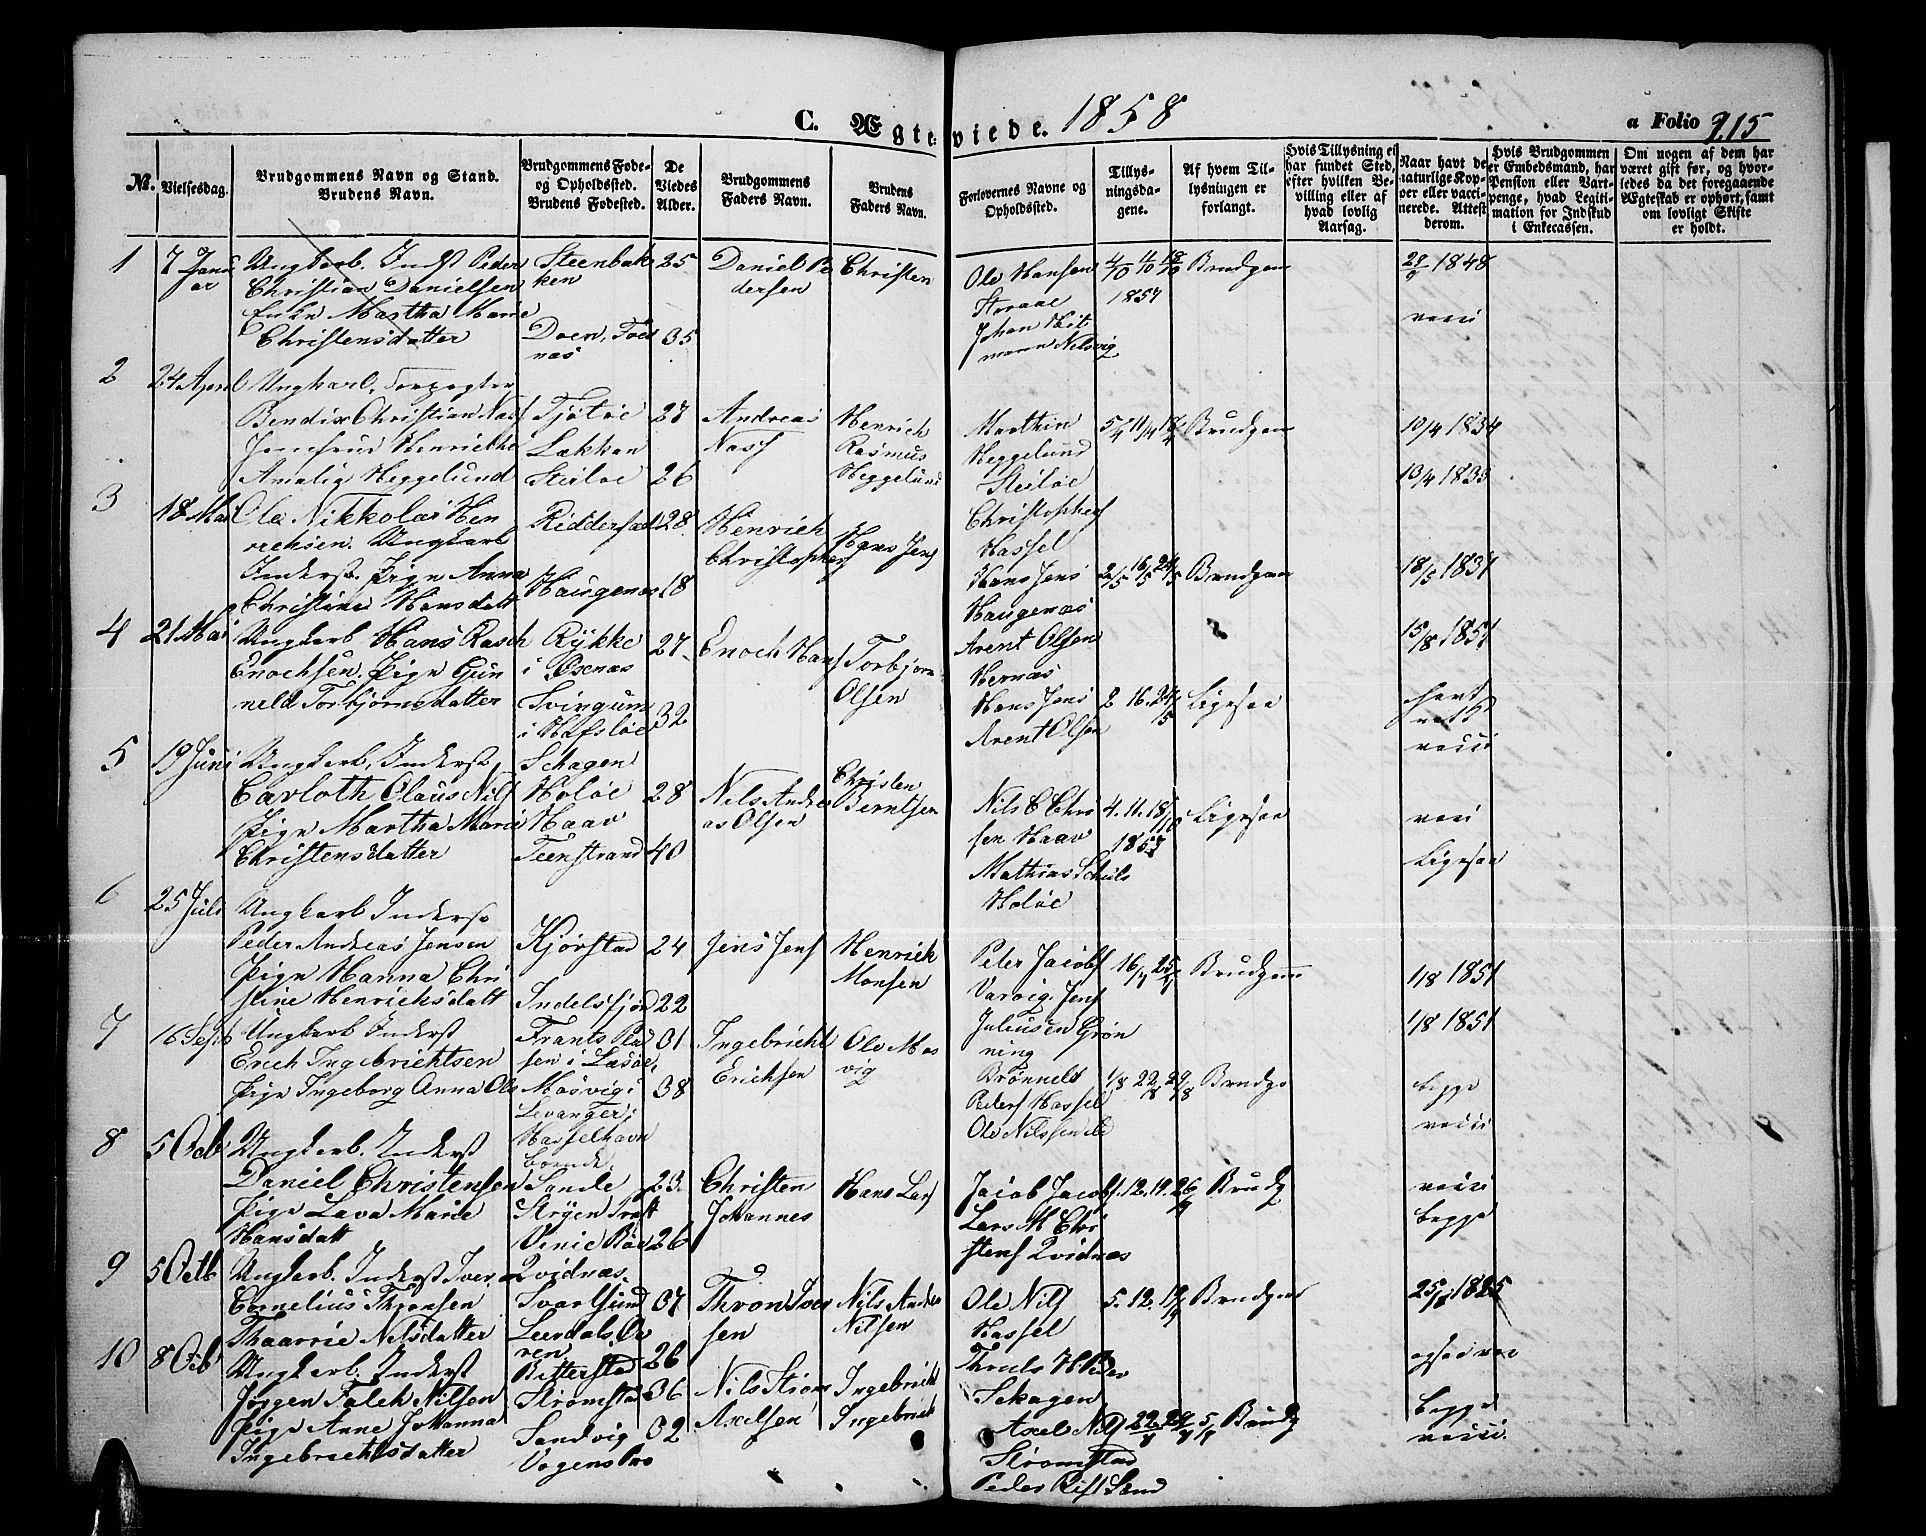 C. Ægteviede. 1858
a Folio 215
No.
Vielsesdag.
Brudgommens Navn og Stand.
Brudens Navn.
Brudgommens Føde-
og Opholdssted.
Brudens Fødested.
De
Viedes
Alder.
Brudgommens
Faders Navn.
Brudens
Faders Navn.
Forlovernes Navne og
Opholdssted.
Tillys-
ningsda-
gene.
Af hvem Til-
lysningen er
forlangt.
Hvis Tillysning ei
har fundet Sted,
efter hvilken Be-
villing eller af
hvad lovlig
Aarsag.
Naar havt de
naturlige Kop-
per eller vacci-
nerede. Attest
derom.
Hvis Brudgommen
er Embedsmand, har
Pension eller Vart-
penge, hvad Legiti-
mation for Indskud
i Enkecassen.
Om nogen af dem har
været gift før, og hvor-
ledes da det foregaaende
Ægteskab er ophørt, samt
om lovligt Skifte
er holdt.
1
7 Janu
ar
Ungkarl. Inds Peder
Christian Danielsen
Enke Martha Marie
Christensdatter
Steenbak
ken
25
35
Daniel Pe
dersen
Christen
Ole Hansen
Johan Hit
mann Nilsvig
4/10 11/10 18/10
1857
Brudgom
1848
vacci
2
24 April
Ungkarl, Forpagter
Bendix Christian Nass
Jomfrue Henrikke
Amalie Heggelund
Tjøtøe
Steiløe
27
26
Andreas
Nass
Henrich
Rasmus
Heggelund
Marthin
Heggelund
Steiløe
Christophers
Hassel
5/4 11/4 18/4
Brudgom
10/4 1834
13/4 1833
3
18 Mai
Ole Nikkolai Hen
richsen. Ungkarl
Inderst. Pige Anna
Christine Hansdatt
Ridderstad
Haugenæs
28
18
Henrich
Christophers
Hans Jens
Hans Jens
Haugenæs
Arent Olsen
Hernæs
2/5 16/5 24/5
Brudgom
18/5 1831
15/8 1851
4
21 Mai
Ungkarl Hans Rasch
Enochsen. Pige Gun
neld Torbjørnsdatter
Rykke
i Øxenæs
Svingum
i Hafsløe
27
32
Enoch Hans
Torbjørn
Olsen
Hans Jens
Arent Olsen
2 16. 24/5
Ligesaa
havt
vacci
5
19 Juni
Ungkarl, Inderst,
Carloth Olaus Nils
Pige Martha Marie
Christensdatter
Schagen
Holøe
Haav
Teenstrand
28
40
Nils Andre
as Olsen
Christen
Berntsen
Nils C Chri
sen Haav
Mathias Schuls
Holøe
4. 11. 18/10
1857
Ligesaa
vacci
Ligesaa
6
25 Juli
Ungkarl Inderst
Peder Andreas Jensen
Pige Hanna Chri
stine Henrichsdatt
Kjørstad
Indelsfjord
24
22
Jens Jens
Henrich
Monsen
Peter Jacobs
Varvig. Jens
Juliusen Grøn
ning
16/7 25/7
Brudgom
1/8 1851
1/8 1851
7
16 Sept
Ungkarl Inderst
Erich Ingebrichtsen
Pige Ingeborg Anna Ols
Frants Pla
sen i Løsøe,
Masvig i
Levanger;
31
38
Ingebricht
Erichsen
Ole Mas
vig
Brønnels
Peders Hassel
Ole Nilssen
1/8 22. 29/8
Brudgo
begge
vacci
8
5 Octb
Ungkarl. Inderst
Daniel Christensen
Pige Lava Marie
Hansdatt
Hasselhavn
boende,
Sande
23.
26
Christen
Johannes
Hans Lars
Jacob Jacobs
Lars M Chri
stens Qvidnæs
12. 19. 26/9
Brudg
vacci
begge
9
5 Octb
Ungkarb. Inderst Iver
Cornelius Thronsen
Thaarrie Nilsdatter
Qvidnæs.
Svartsund
37
26
Thron Iver
sen
Nils Andre
Nilsen
Ole Nils
Hassel
Schagen
5. 12. 19/9
Brudgom
25/8 1825
ogsaa vac
10
8 Octb
Ungkarl. Inderst
Jørgen Falch Nilsen
Pige Anne Johanna
Ingebrichtsdatter
Bitterstad
Strømstad
Sandvig
Vogens Præ
36
32
Nils Stiom
Axelsen
Ingebricht
Ingebricht
Axel Nils
Strømstad
Peder Rist Sand
22/8 29/8 5/9
Brudg
begge
vacci.